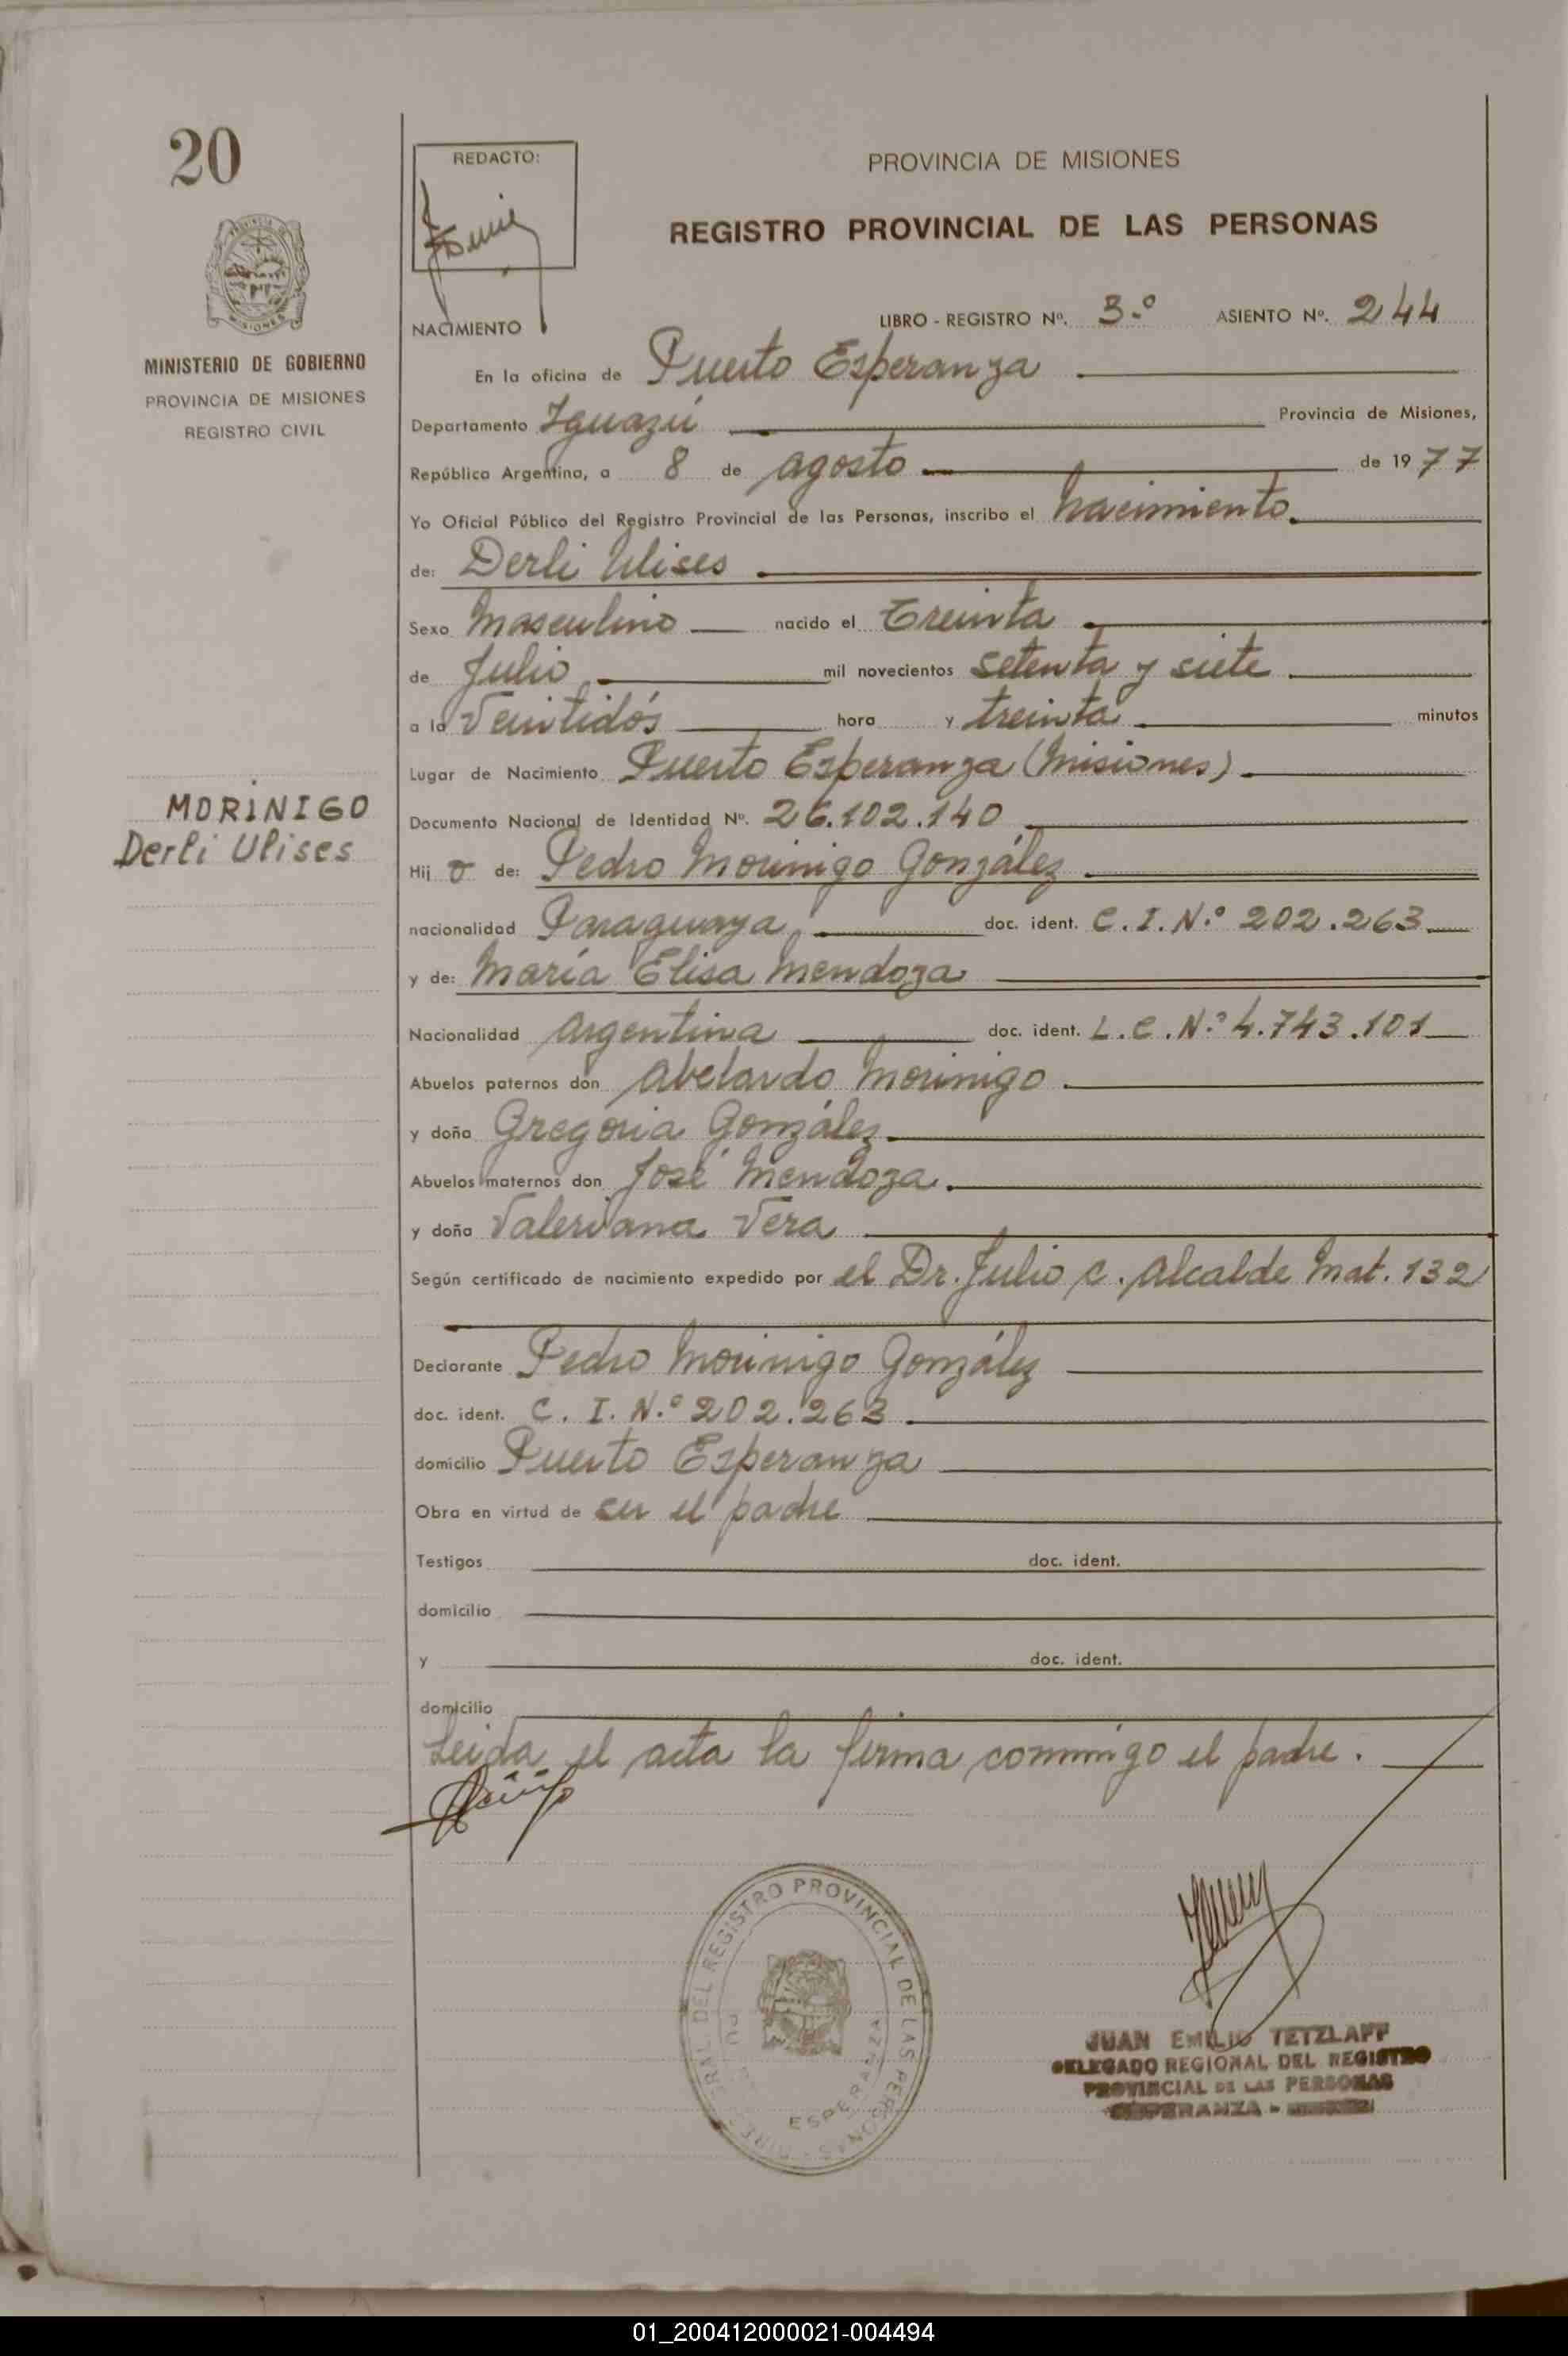 20
REDACTO:
PROVINCIA DE MISIONES
REGISTRO PROVINCIAL DE LAS PERSONAS
MINISTERIO DE GOBIERNO
PROVINCIA DE MISIONES
REGISTRO CIVIL
NACIMIENTO
LIBRO - REGISTRO Nº. 3.º ASIENTO Nº. 244
En la oficina de Puerto Esperanza
Departamento Iguazú Provincia de Misiones,
República Argentina, a 8 de agosto de 1977
Yo Oficial Público del Registro Provincial de las Personas, inscribo el nacimiento
de: Derli Ulises
Sexo masculino nacido el Treinta
de Julio mil novecientos setenta y siete
a la Veintidós hora y treinta minutos
Lugar de Nacimiento Puerto Esperanza (Misiones)
MORINIGO
Derli Ulises
Documento Nacional de Identidad Nº. 26.102.140
Hij o de: Pedro Morinigo González
nacionalidad Paraguaya doc. ident. C.I.N.º 202.263
y de: María Elisa Mendoza
Nacionalidad Argentina doc. ident. L.C.N.º 4.743.101
Abuelos paternos don Abelardo Morinigo
y doña Gregoria González
Abuelos maternos don José Mendoza
y doña Valeriana Vera
Según certificado de nacimiento expedido por el Dr. Julio C. Alcalde Mat. 132
Declarante Pedro Morinigo González
doc. ident. C.I.N.º 202.263
domicilio Puerto Esperanza
Obra en virtud de ser el padre
Testigos doc. ident.
domicilio
y doc. ident.
domicilio
Leída el acta la firma conmigo el padre.
REGISTRO PROVINCIAL DE LAS PERSONAS
ESPERANZA
JUAN EMILIO TETZLAFF
DELEGADO REGIONAL DEL REGISTRO
PROVINCIAL DE LAS PERSONAS
ESPERANZA - MISIONES
01_200412000021-004494